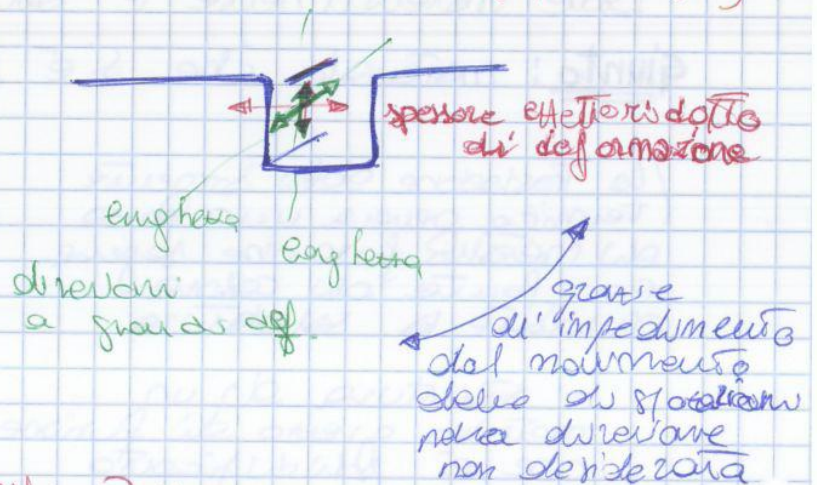 spessore effetti ridotto
di deformazione
lunghezza
lunghezza
direzioni
a grandi def.
grazie
di impedimento
dal movimento
delle dislocazioni
nella direzione
non desiderata